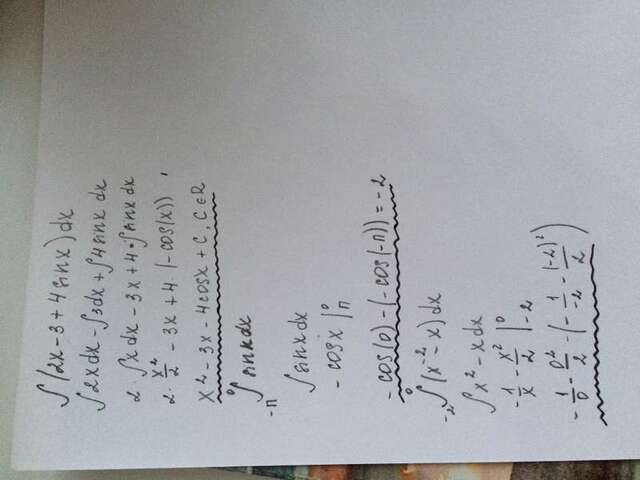 ∫(2x-3+4sinx)dx
∫2xdx-∫3dx+∫4sinx dx
2·∫xdx-3x+4·∫sinxdx
2·x²/2-3x+4·(-cos(x))
x²-3x-4cosx+C, C∈R
₋π∫⁰sinxdx
∫sinxdx
-cosx|⁰π
-cos(0)-(-cos(-π))=-2
₋₂∫⁰(x⁻²-x)dx
∫x²-xdx
-1/x-x²/2|⁰₋₂
-1/0-0²/2-(-1/-2-(-2)²/2)